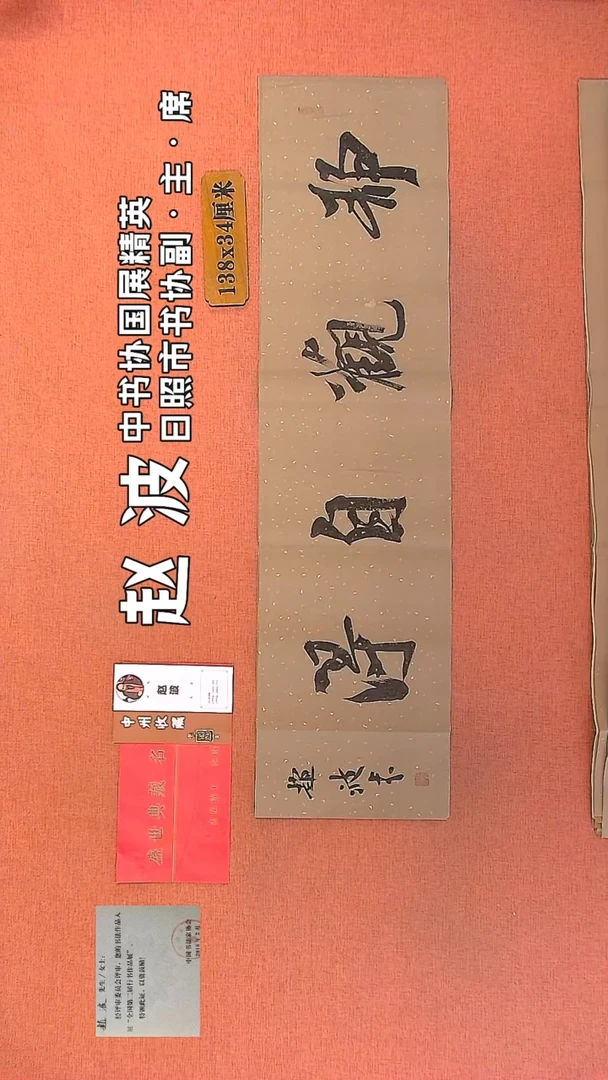 赵波
中书协国展精英
日照市书协副·主·席
138x34厘米
静觀自得
趙波書
赵波
中州收藏
盛世典藏
先生/女士:
经评审委员会评审,您的书法作品入
展“全国第二届行书作品展”。
特颁此证,以资鼓励!
中国书法家协会